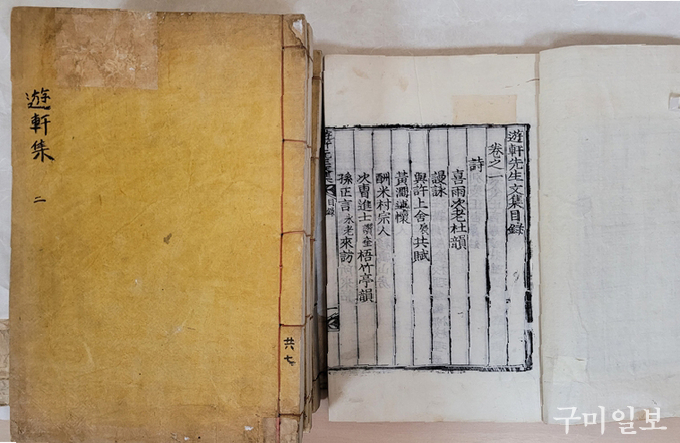 遊軒集 二
共七
遊軒先生文集目錄
卷之一
詩
喜雨次老杜韻
謾詠
與許上舍共賦
黃澗遣懷
酬米村宗人
次曺進士梧竹亭韻
孫正言永老來訪
目錄
구미일보